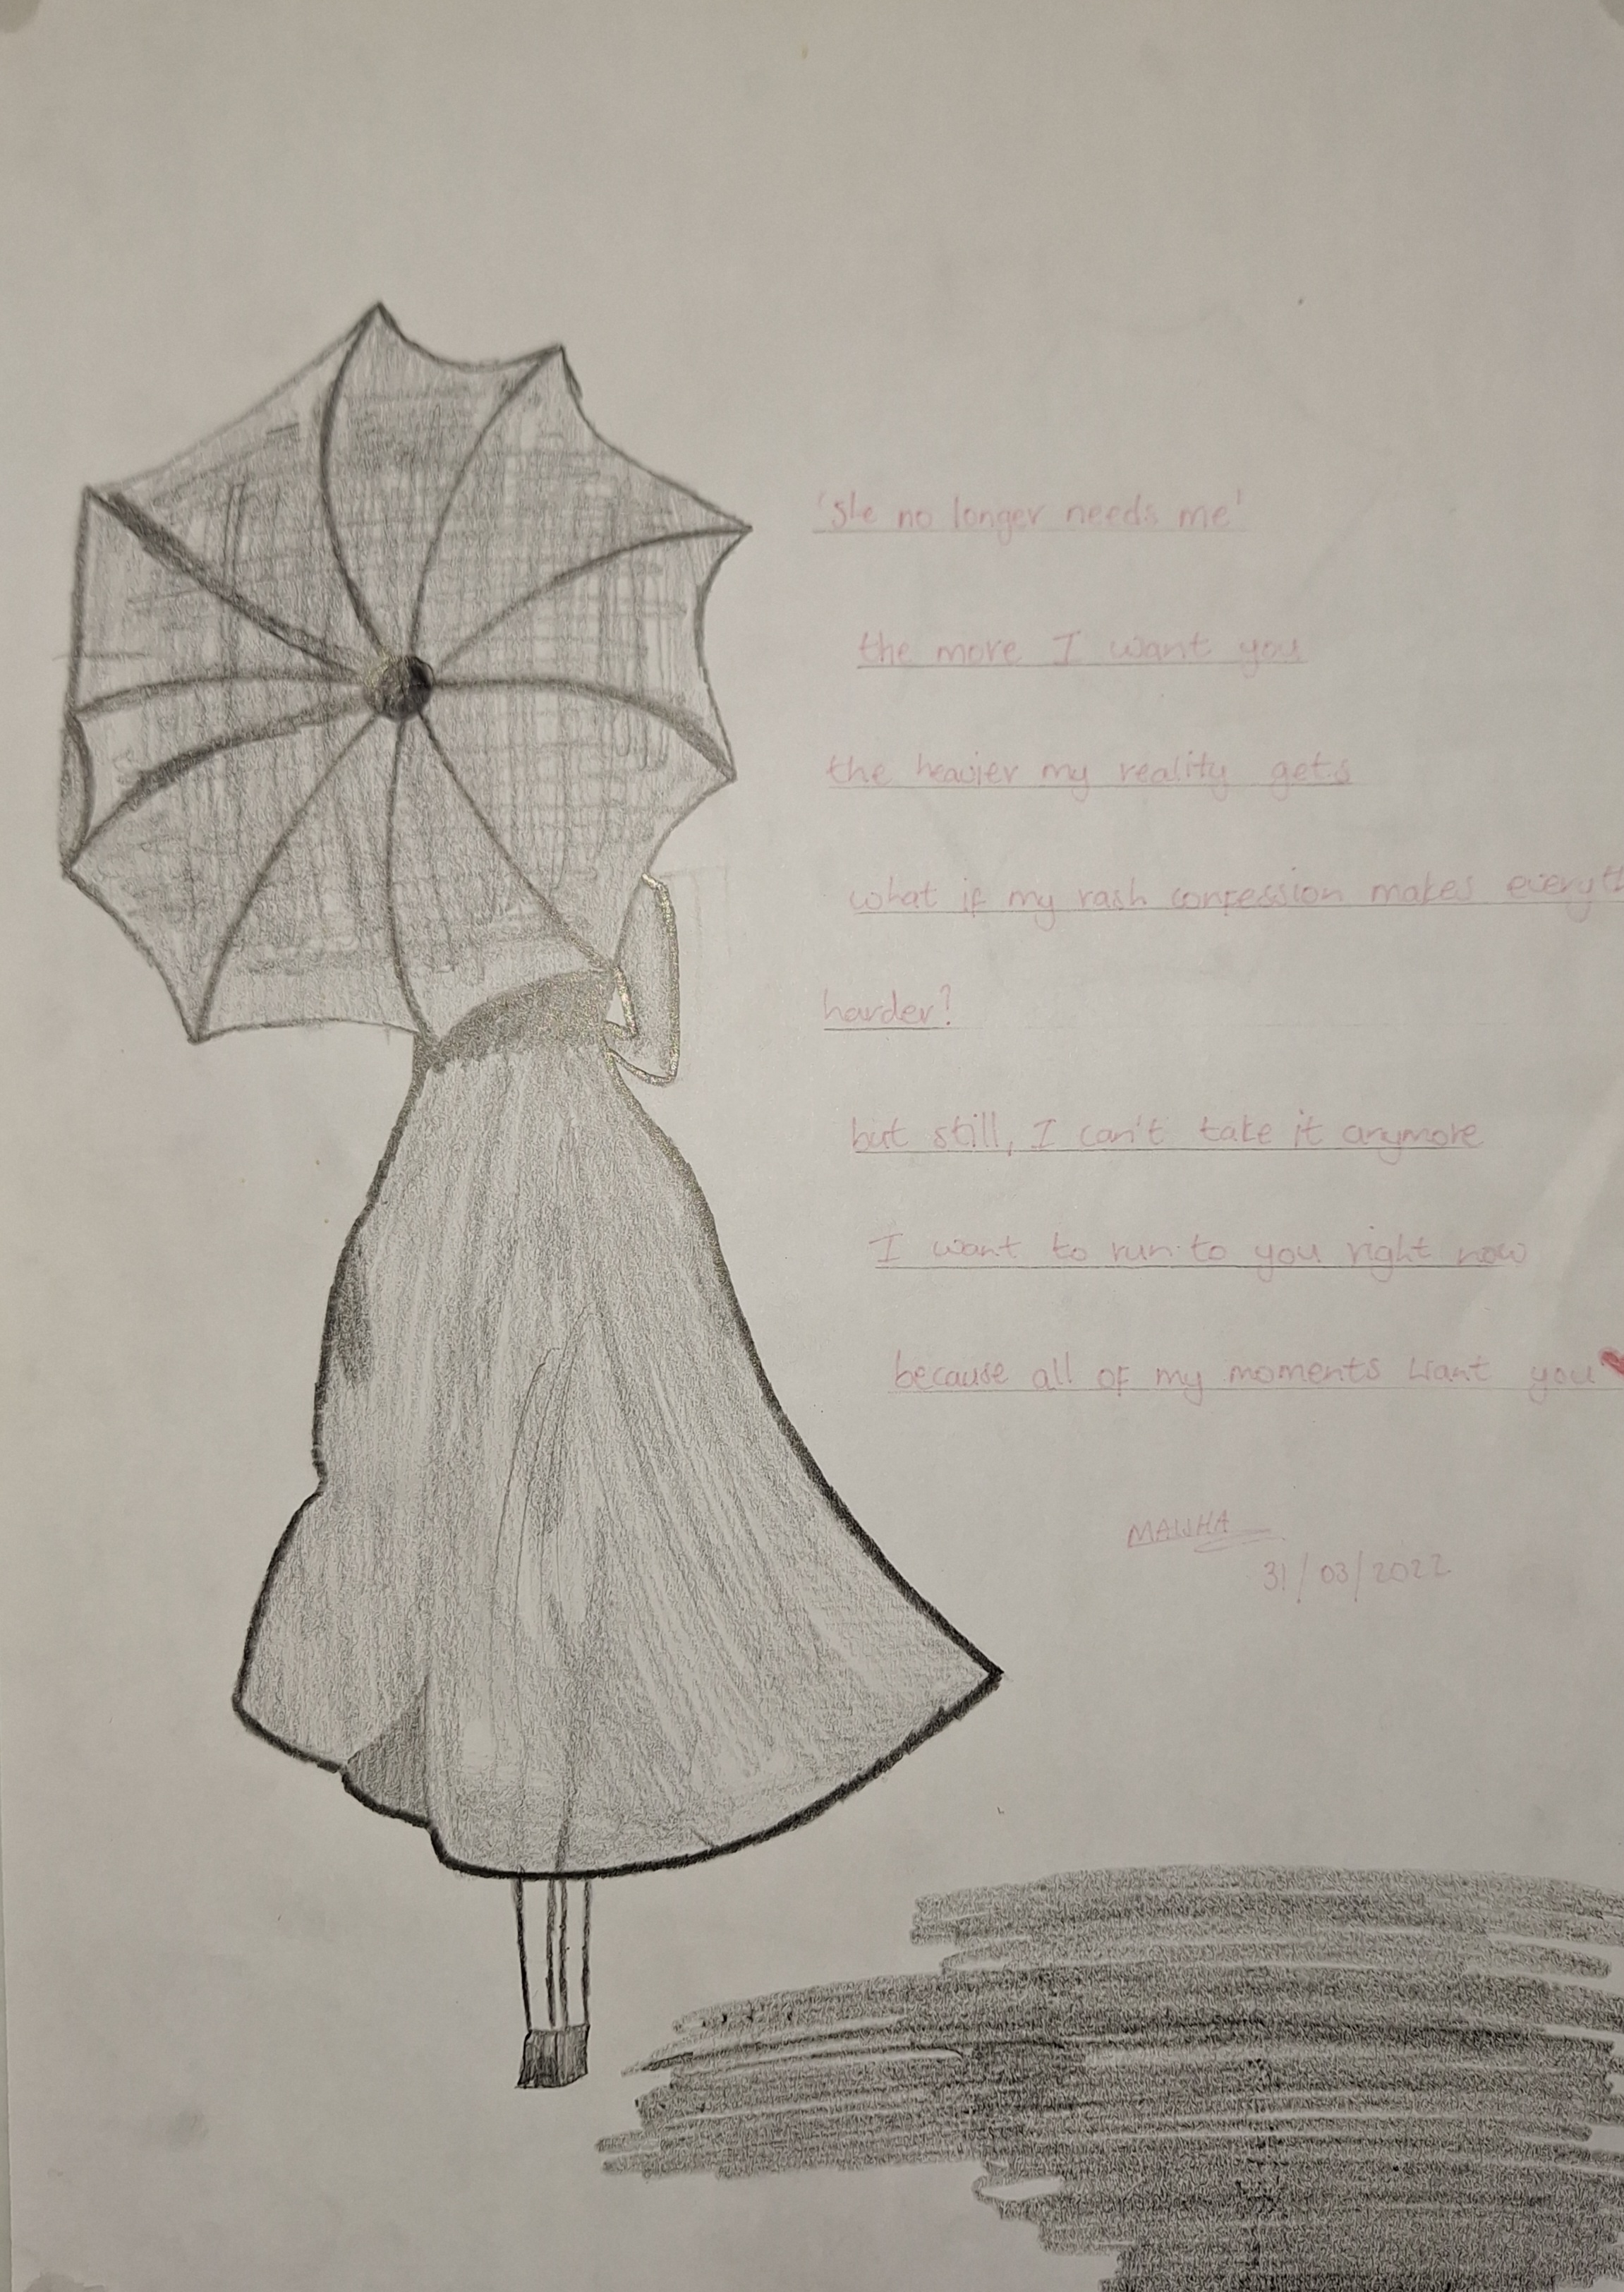 'She no longer needs me'
the more I want you
the heavier my reality gets
what if my rash confession makes everyth
harder?
but still, I can't take it anymore
I want to run to you right now
because all of my moments want you
31/03/2022